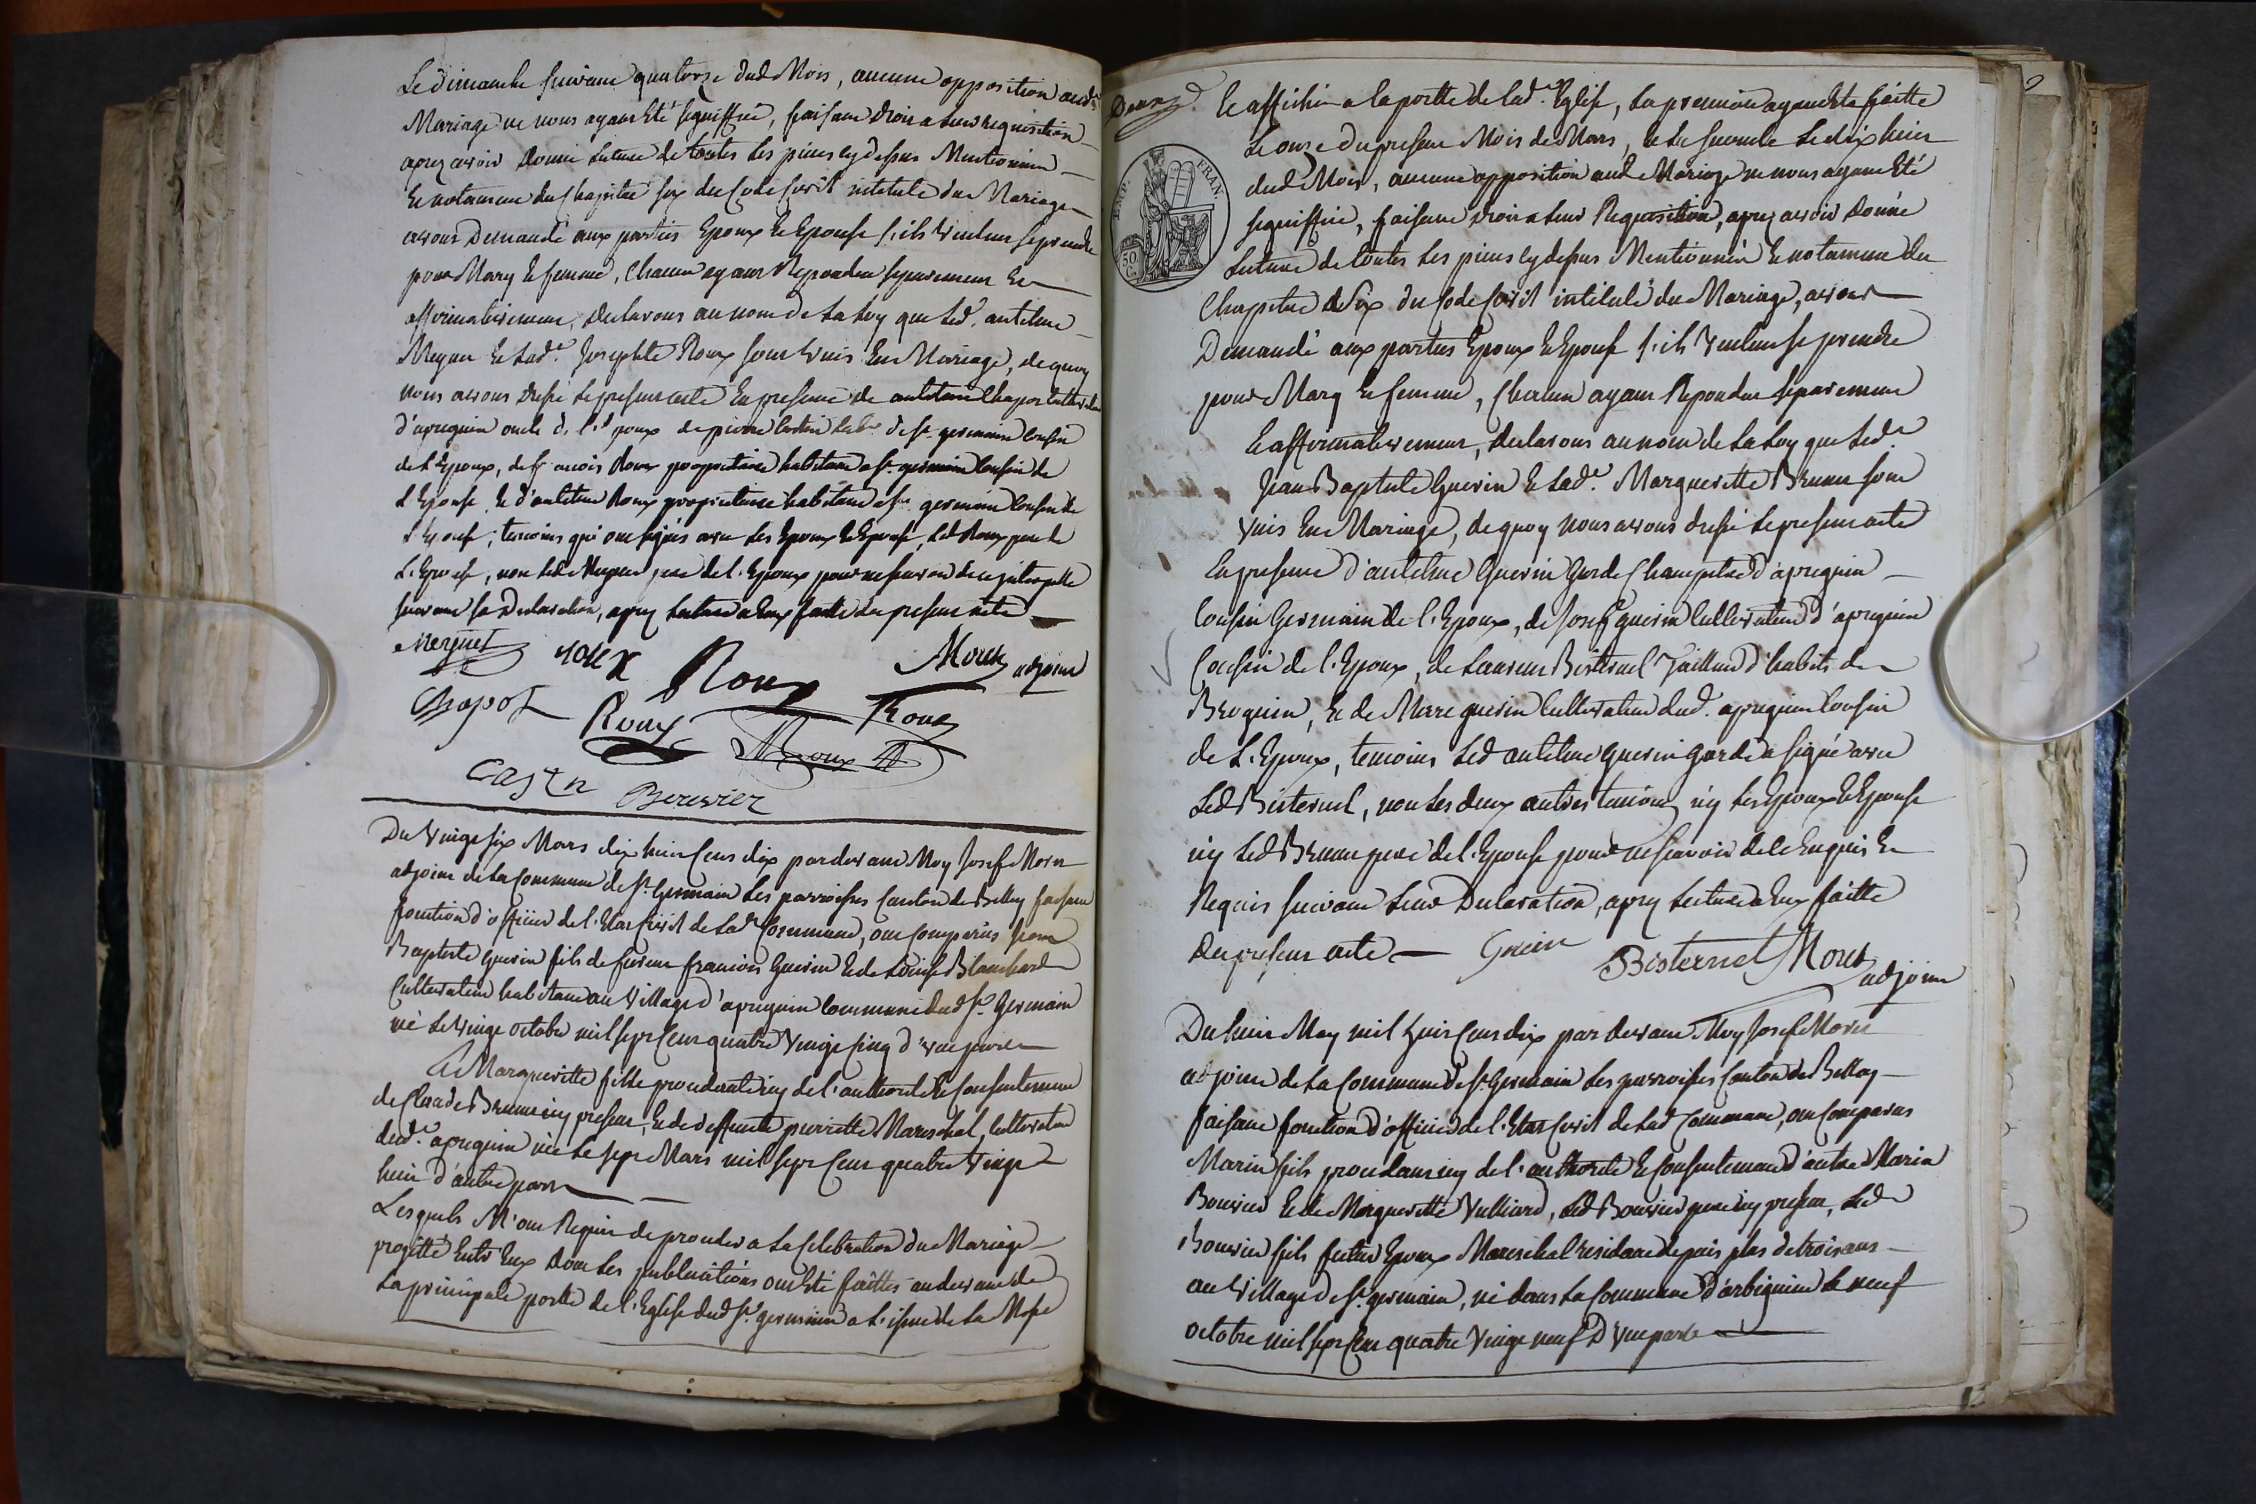 Le dimanche suivant quatorze dud. Mois, aucune opposition aud.
Mariage ne nous ayant été signiffiée, faisant droit a leur requisition
apres avoir donné lecture de toutes les pieces cy dessus Mentionnées
Et notament du Chapitre six du Code Civil intitulé du Mariage
avons Demandé aux parties Epoux et Epouse s'ils veulent se prendre
pour Mary et femme, Chacun ayant Repondu separement Et
affirmativement, declarons au nom de La Loy que Led. antelme
Meynet et Lad.e Josephte Roux sont unis En Mariage, de quoy
nous avons dressé le present acte En presence de antelme Chapot Cultivateur
d'apregnin oncle de l'époux de pierre Castin de St. germain Cousin
de L'Epoux, de francois Roux proprietaire habitant a St. germain Cousin de
L'Epouse Et d'antelme Roux proprietaire habitant a St. germain Cousin de
L'Epouse; temoins qui ont signés avec Les Epoux et Epouse, Led. Roux pere de
L'Epouse, non Led. Meynet pere de l'Epoux pour ne savoir de ce interpellé
suivant sa Declaration, apres Lecture a Eux faitte du present acte
Roux
Moret adjoint
Chapot
Roux
Roux
Roux
Castn
Bouvier
Du vingt six Mars dix huit Cent dix pardevant Moy Josef Moret
adjoint de La Commune de St. Germain Les parroisses Canton de Belley faisant
fonction d'officier de l'Etat Civil de Lad. Commune, ont comparus Jean
Baptiste guerin fils de feu francois Guerin Et de Louise Blanchard
Cultivateur habitant au village d'apregnin commune dud. St. Germain
né Le vingt octobre mil sept Cent quatre vingt cinq d'une part
Et Margueritte fille procedante icy de l'authorité et Consentement
de Claude Brunet icy present, Et de deffunte pierrette Mareschal, Cultivateur
dud. apregnin née Le sept Mars mil sept Cent quatre vingt
huit d'autre part
Lesquels M'ont Requis de proceder a La Celebration du Mariage
projetté Entr'Eux dont Les publications ont été faittes au devant de
La principale porte de l'Eglise dud. St. germain a L'issue de La Messe
Deux
EMP. FRAN.
50 C.
Et affichées a la portte de lad. Eglise, La premiere ayant été faitte
Le onze du present Mois de Mars, et La seconde Le dix huit
dud. Mois, aucune opposition aud. Mariage ne nous ayant été
signiffiée, faisant droit a leur Requisition, apres avoir donné
Lecture de toutes Les pieces cy dessus Mentionnées Et notament du
Chapitre six du Code Civil intitulé du Mariage, avons
Demandé aux parties Epoux et Epouse s'ils veulent se prendre
pour Mary et femme, Chacun ayant Repondu separement
Et affirmativement, declarons au nom de La Loy que Led.
Jean Baptiste Guerin Et Lad.e Marguerite Brunet sont
unis En Mariage, de quoy nous avons dressé Le present acte
En presence d'antelme Guerin garde Champetre d'apregnin
Cousin Germain de l'Epoux, de Josef guerin Cultivateur d'apregnin
Cousin de l'Epoux, de Laurent Bisternel Tailleur d'habits de
Brognin, Et de guerin Cultivateur dud. apregnin Cousin
de L'Epoux, temoins Led. antelme guerin garde a signé avec
Led. Bisternel, non Les deux autres temoins ny Les Epoux et Epouse
ny Led. Brunet pere de l'Epouse pour ne sçavoir de ce Enquis Et
Requis suivant Leur Declaration, apres Lecture a Eux faitte
Du present acte Guerin Bisternel Moret
adjoint
Du huit May mil huit Cent dix par devant Moy Josef Moret
adjoint de La Commune de St. Germain Les parroisses Canton de Belley
faisant fonction d'officier de l'Etat Civil de Lad. Commune, ont comparus
Marin fils procedant icy de l'authorité et Consentement d'autre Marin
Bouvier Et de Marguerite Vulliard, Led. Bouvier pere icy present, Led.
Bouvier fils futur Epoux Mareschal residant depuis plus de trois ans
au Village de St. germain, né dans La Commune d'arbignieu Le neuf
octobre mil sept Cent quatre vingt neuf D'une part